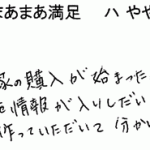 まあまあ満足 ハ やや
家の購入が始まった
情報が入りしだい
作っていただいて 分か